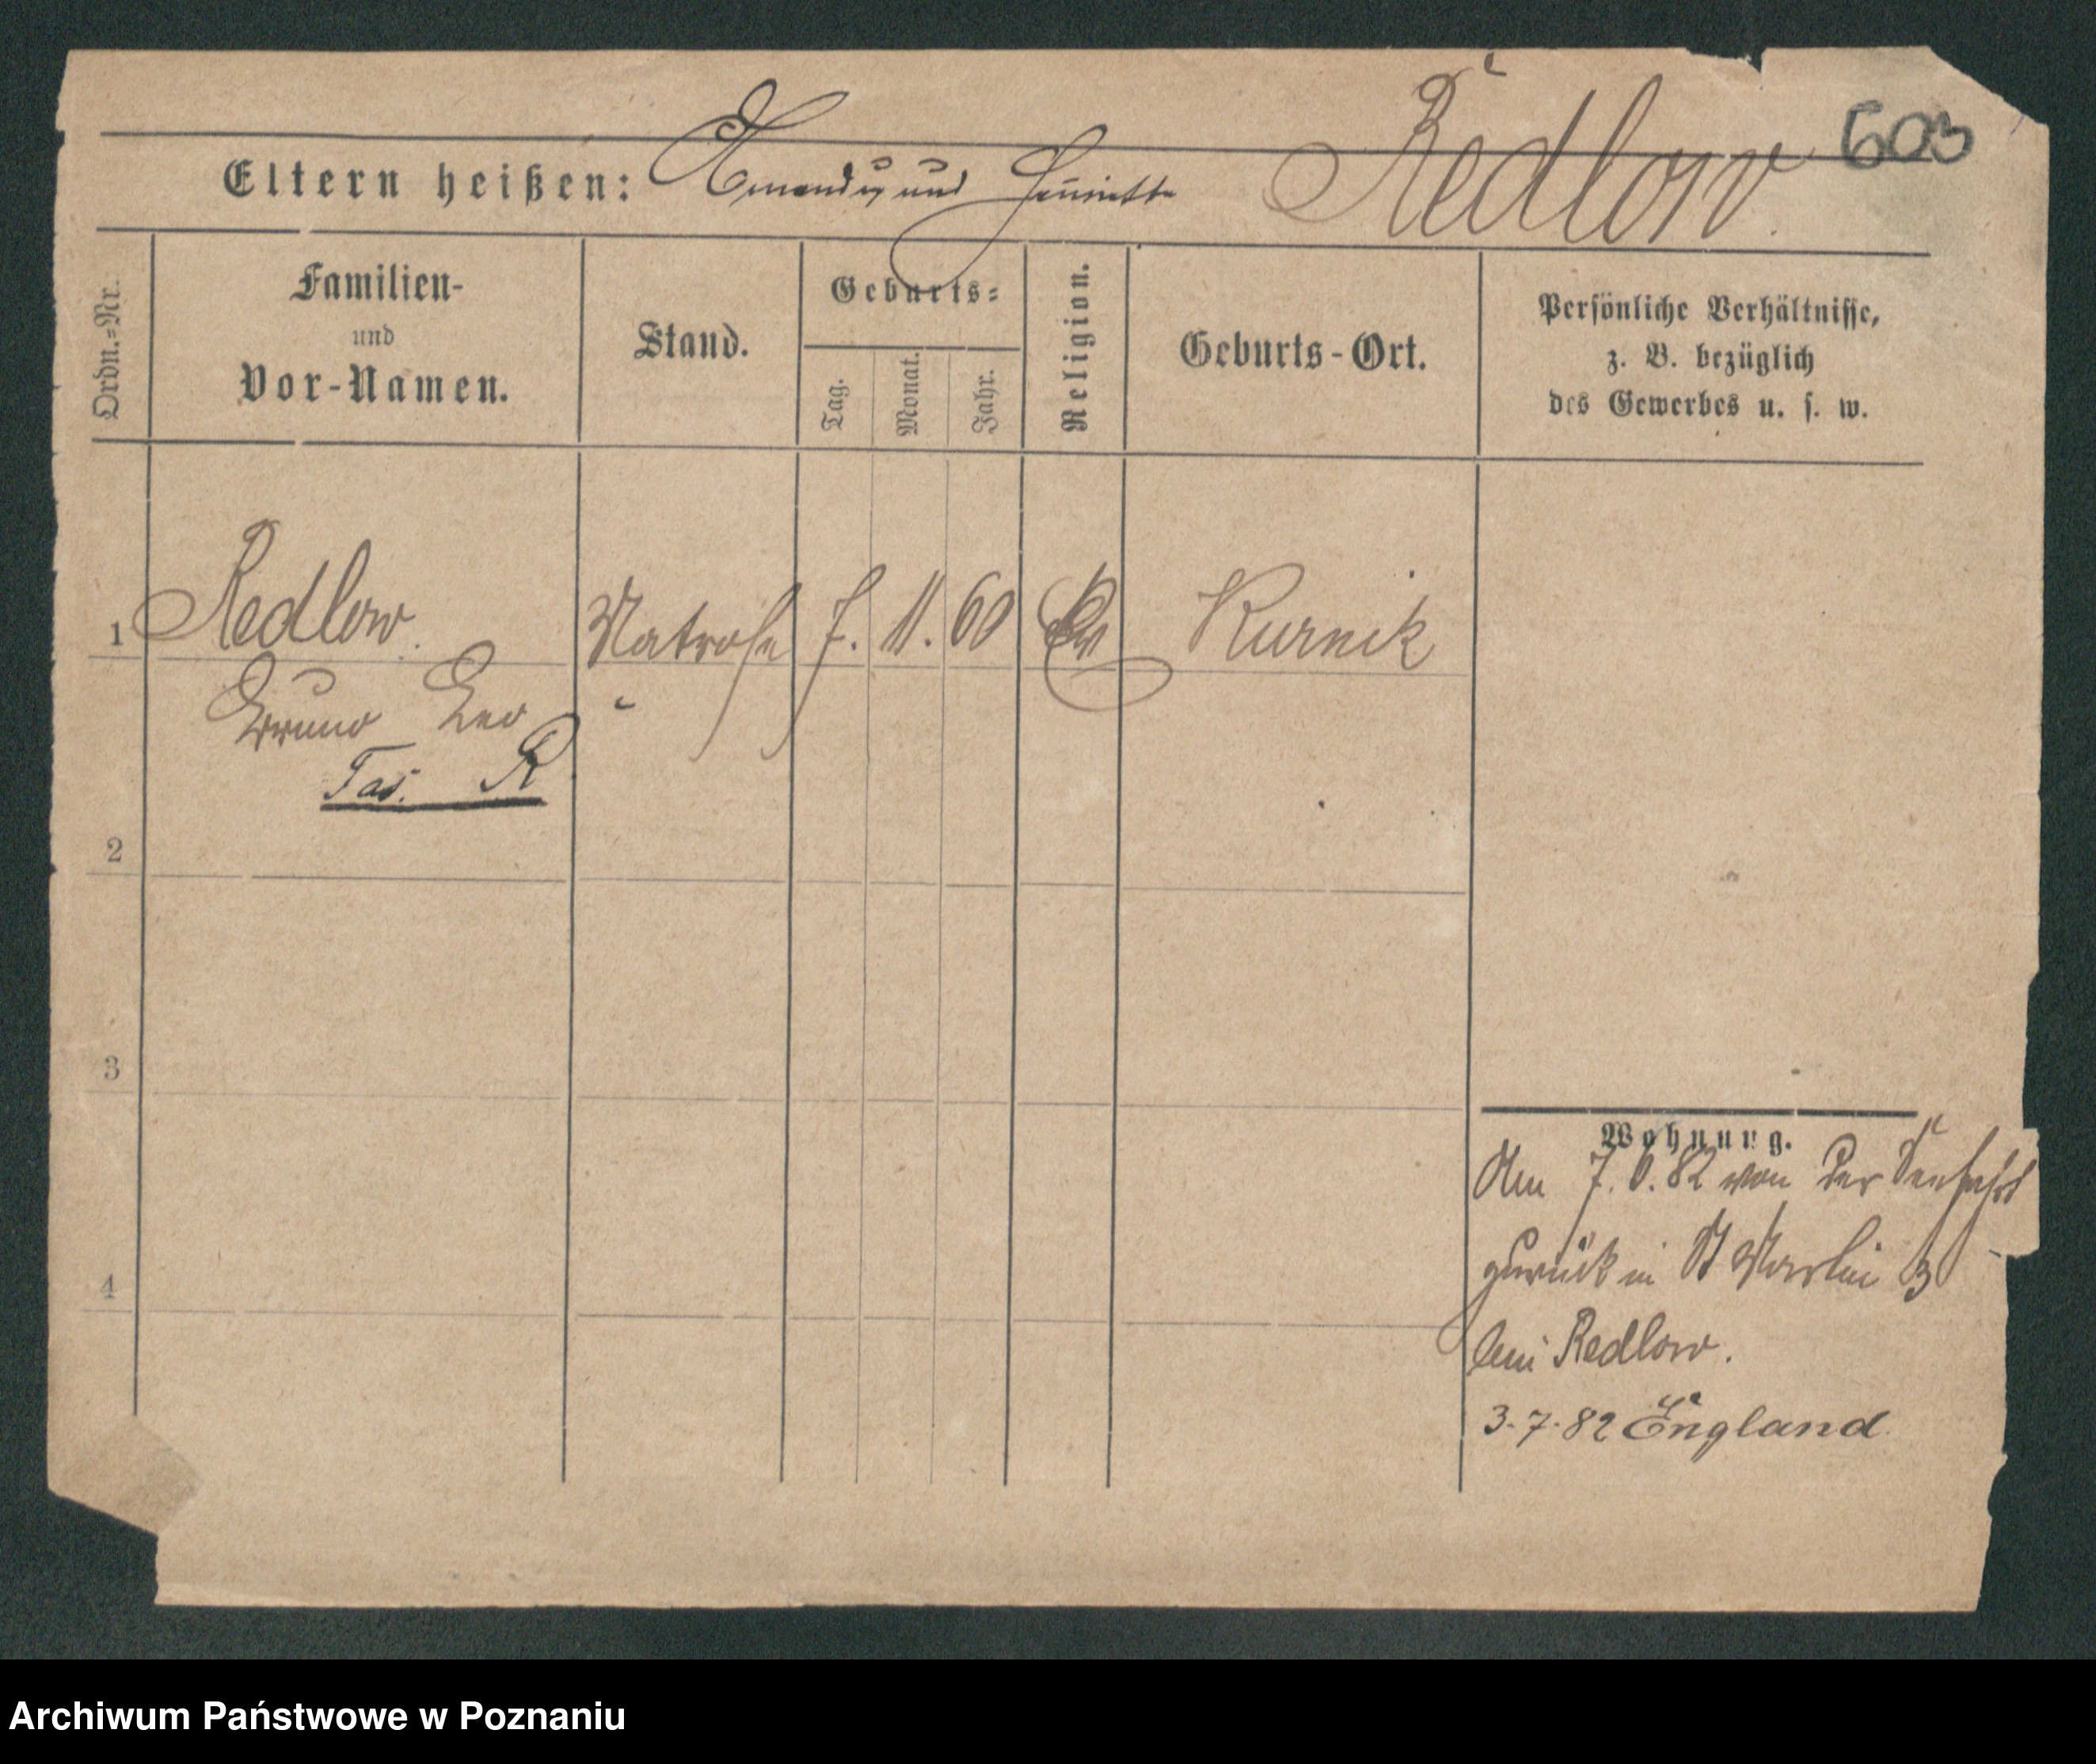 603
Eltern heißen: und Henriette Redlow.
Ordn.=Nr.
Familien-
und
Vor-Namen.
Stand.
Geburts=
Tag.
Monat.
Jahr.
Religion.
Geburts-Ort.
Persönliche Verhältnisse,
z. B. bezüglich
des Gewerbes u. s. w.
1 Redlow. Matrose 7. 11. 60 Ev Kurnik
Bruno Leo
Pas. R
2
3
4
Wohnung.
Am 7. 6. 82 von der Seefahrt
zurück in St Martin 3
bei Redlow.
3.7.82 England
Archiwum Państwowe w Poznaniu